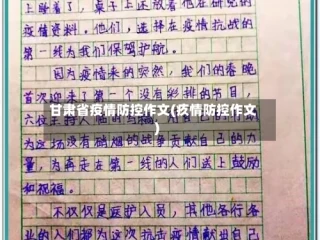 上睡着了，桌子上还放着他在研究的
疫情资料。他们，选择在疫情抗战的
第一线为我们保驾护航。
因为疫情来的突然，我们的春晚
首次迎来了第一个没有彩排的节目，
甘肃省疫情防控作文(疫情防控作文
)
六位主持人
为这场没有硝烟的战争贡献自己的力
量，为奔走在第一线的人们送上鼓励
和祝福。
不仅仅是医护人员，其他各行各
业的人们都为这次抗击疫情献出自己